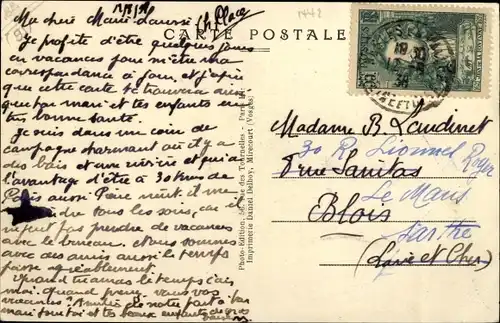 Ma chère Marie Laure
CARTE POSTALE
Je profite d'être quelques jours
en vacances pour m'être ma
correspondance à jour, et j'espère
que cette carte te trouvera ainsi
que ton mari et tes enfants en
très bonne santé.
Je suis dans un coin de
campagne charmant où il y a
des bois et une rivière et qui a
l'avantage d'être à 30 kms de
Paris aussi Pierre peut il me
tous les soirs, car il
n'peut pas prendre de vacances
avec le bureau. Nous sommes
avec des amis aussi le temps
passe agréablement.
Quand tu auras le temps écris
moi. Quand prenez vous vos
vacances? Amitiés de notre part à ton
mari pour toi et tes beaux enfants de gros
baisers
Photo-Edition, rue des Tournelles - Paris
Imprimerie Daniel Delboy, Mirecourt (Vosges)
Madame B. Laudinet
30 R. Lionnel Royer
rue Sanitas
Le Mans
Blois
Sarthe
(Loire et Cher)